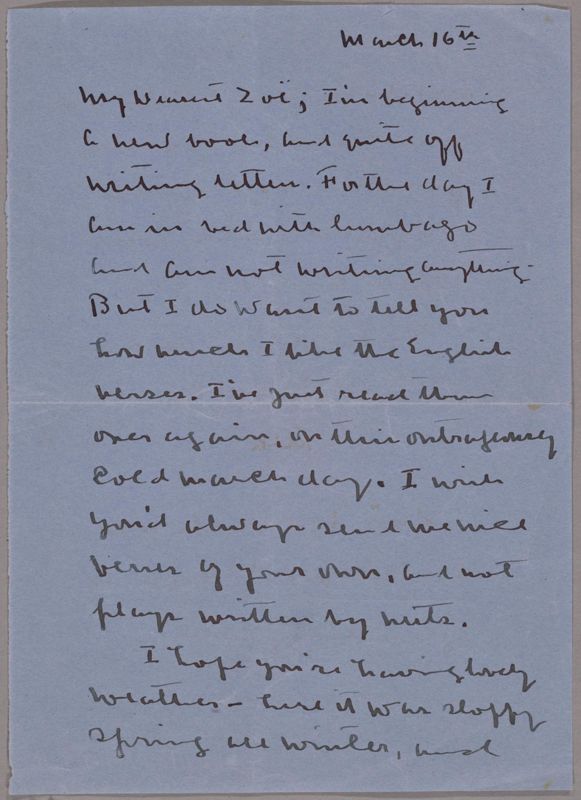 March 16th
My Dearest Zoë; I'm beginning
a new book, and quite off
writing letters. For the day I
am in bed with lumbago
and am not writing anything.
But I do want to tell you
how much I like the English
verses. I've just read them
over again, on this outrageously
cold March day. I wish
you'd always send me nice
verses of your own, and not
plays written by nuts.
I hope you're having lovely
weather - here it was sloppy
spring all winter, and